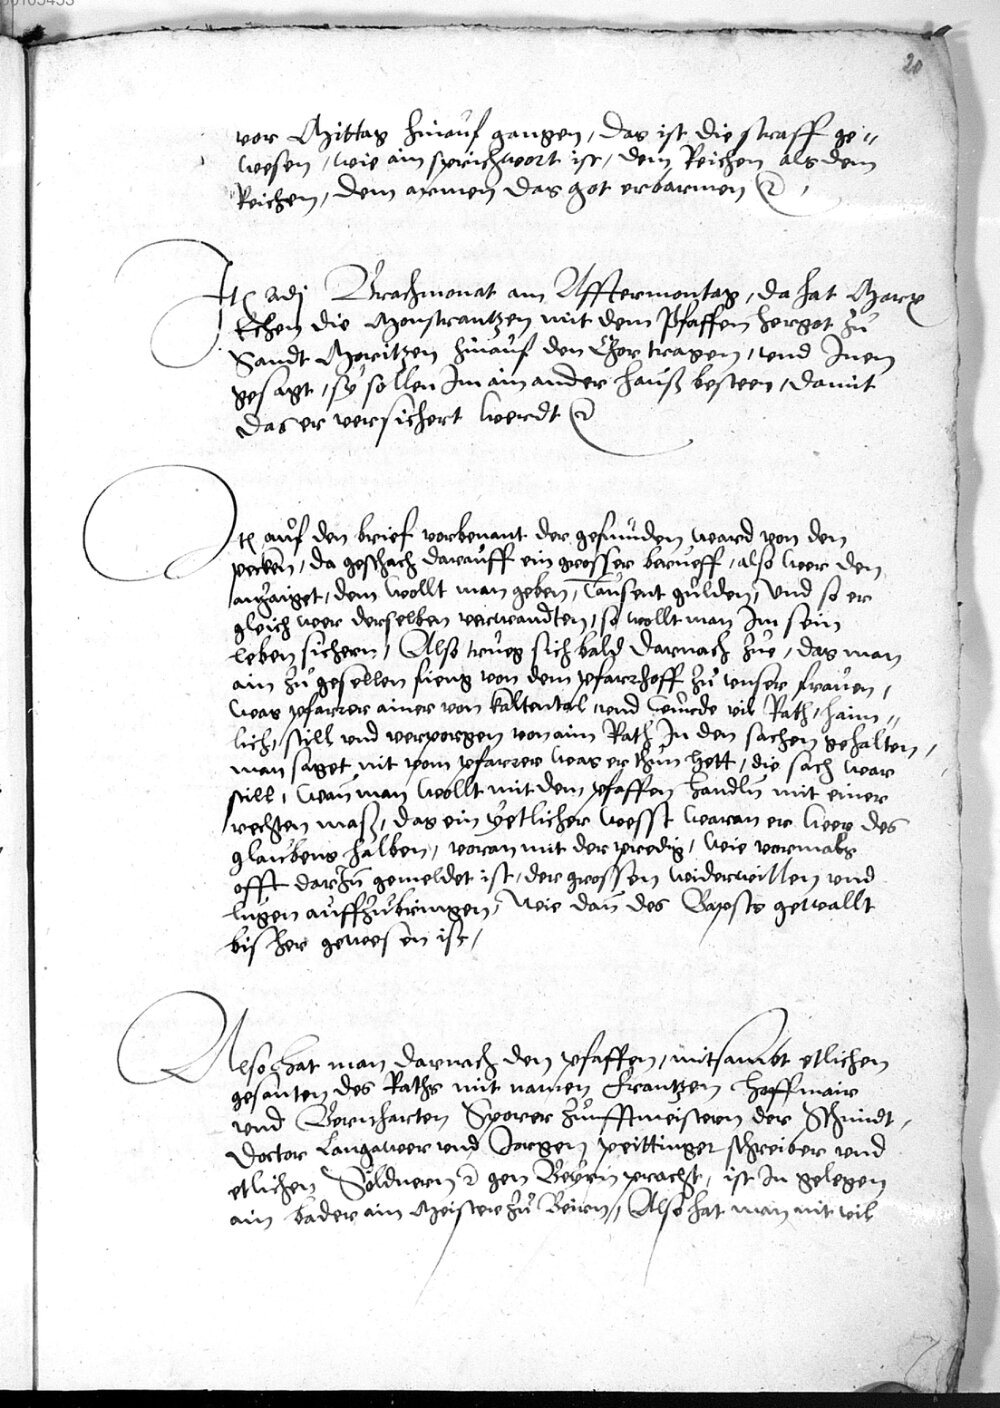 20
vor Mittag hinauf gangen, das ist die straff ge"
wesen, wie ain sprichwort ist, dem Reichen als dem
Reichen, dem armen das got erbarmen
Itē adj Brachmonat am Afftermontag, da hat Marx
Ehem die Monstrantzen mit dem Pfaffen hergot zu
Sandt Moritzen hinauf den Chor tragen, und Inen
gesagt, sy sollen Im ain ander hauß besteen, damit
das er versichert werdt
Itē auf den brief vorbenant der gefunden ward von den
pecken, da geschach darauff ein grosser berueff, also wer den
anzaiget, dem wollt man geben, Tausent gulden, Und so er
gleich wer derselben verwandten, so wollt man Im sein
leben sichern, Also trueg sich bald darnach zue, das man
ain zu gesellen fieng von dem pfarrhoff zu unser frauen,
was pfarrer ainer von Kaltental, und wurde vil Rath, haim"
lich, still und verporgen von aim Rath In den sachen gehalten,
man saget nit vom pfarrer was er thun hett, die sach war
still, wan man wollt mit dem pfaffen handln mit einer
rechten maß, das ein yetlicher wesst waran er wer des
glaubens halben, voran mit der predig, wie vormals
offt darzu gemeldet ist, der grossen widerwillen und
lugen auffzubringen, wie dan des Bapsts gewallt
bisher gewesen ist,
Also hat man darnach den pfaffen, mitsambt etlichen
gesanten des Raths mit namen Frantzen Hoffmair
und Bernharten Sporer zunfftmeistern der Schmidt,
Doctor Langawer und Jorgen peittinger schreiber und
etlichen Söldnern gen Beyrn pracht, ist In gelegen
ain bader ain Meister zu Beirn, Also hat man nit vil